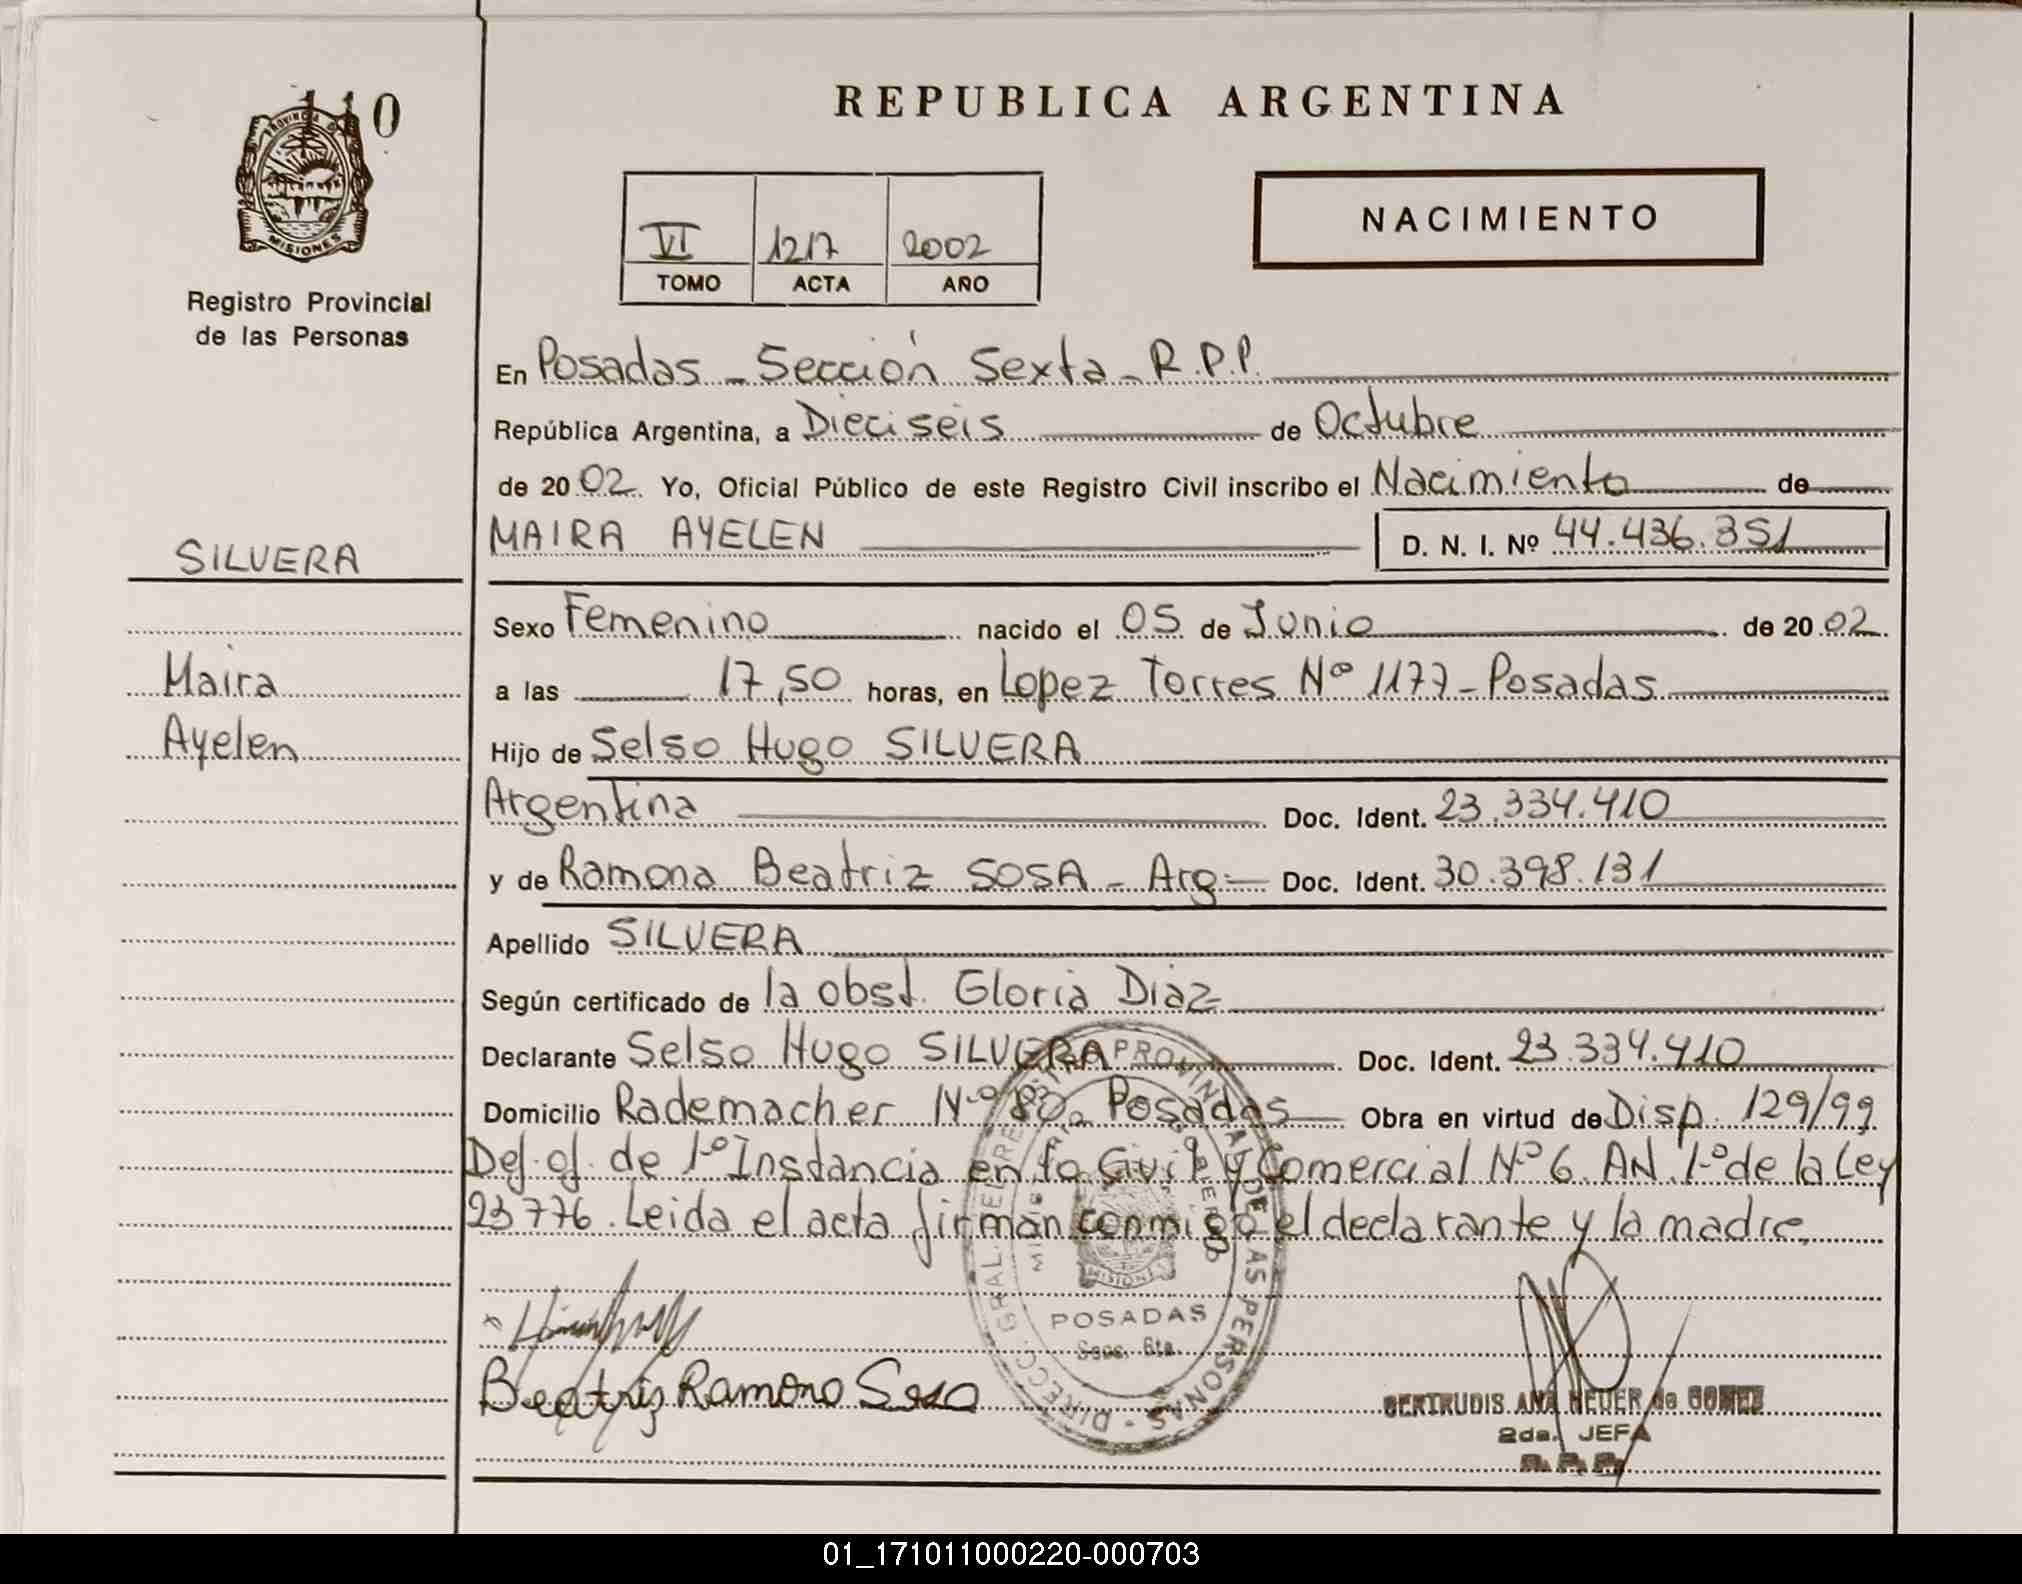 110
PROVINCIA DE
MISIONES
Registro Provincial
de las Personas
REPUBLICA ARGENTINA
VI 1217 2002
TOMO ACTA AÑO
NACIMIENTO
En Posadas - Sección Sexta - R.P.P.
República Argentina, a Dieciseis de Octubre
de 2002. Yo, Oficial Público de este Registro Civil inscribo el Nacimiento de
SILVERA
MAIRA AYELEN D. N. I. Nº 44.436.351
Sexo Femenino nacido el 05 de Junio de 2002.
Maira
a las 17,50 horas, en Lopez Torres Nº 1177 - Posadas
Ayelen
Hijo de Selso Hugo SILVERA
Argentina Doc. Ident. 23.334.410
y de Ramona Beatriz SOSA - Arg. Doc. Ident. 30.398.131
Apellido SILVERA
Según certificado de la obst. Gloria Diaz
Declarante Selso Hugo SILVERA Doc. Ident. 23.334.410
Domicilio Rademacher Nº Posadas Obra en virtud de Disp. 129/99
Def. of. de 1º Instancia en lo Civil y Comercial Nº 6. AN. 1º de la Ley
23776. Leida el acta firman conmigo el declarante y la madre.
DIRECC. GRAL. DEL REGISTRO PROVINCIAL DE LAS PERSONAS
MISIONES
POSADAS
Secc. 6ta
Beatriz Ramona Sosa
GERTRUDIS ANA HEUER de GOMEZ
2da. JEFA
R.P.P.
01_171011000220-000703